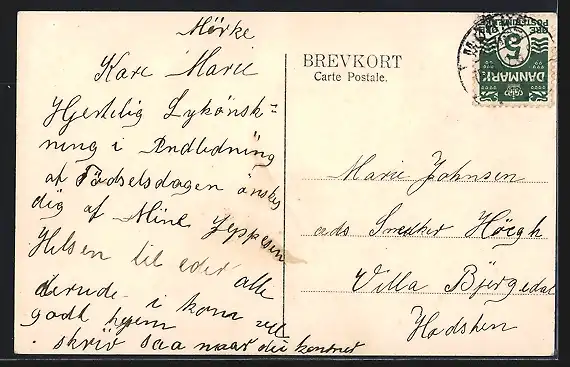 Mörke
Kare Marie
Hjertelig Lykönsk-
ning i Andledning
af Födselsdagen önskes
dig af Mine Jeppesen
Helsen til eder alle
derude. i kom vel
godt hjem
skriv saa naar du kommer
BREVKORT
Carte Postale.
5
DANMARK
Marie Johnsen
ads Snedker Höegh
Villa Bjergedal
Hadsten